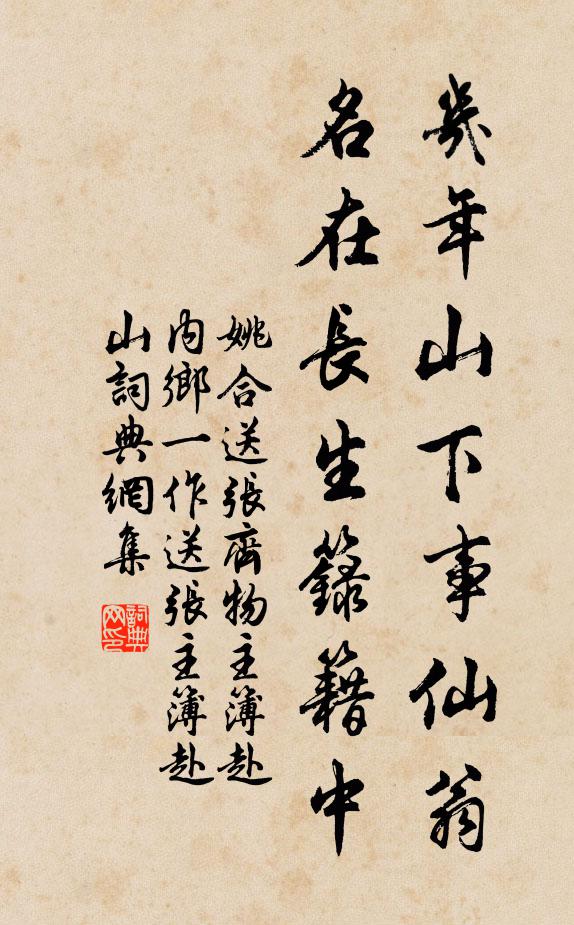 幾年山下事仙翁
名在長生籙籍中
姚合送張齊物主簿赴
內鄉一作送張主簿赴
山詞典網集
詞典網印